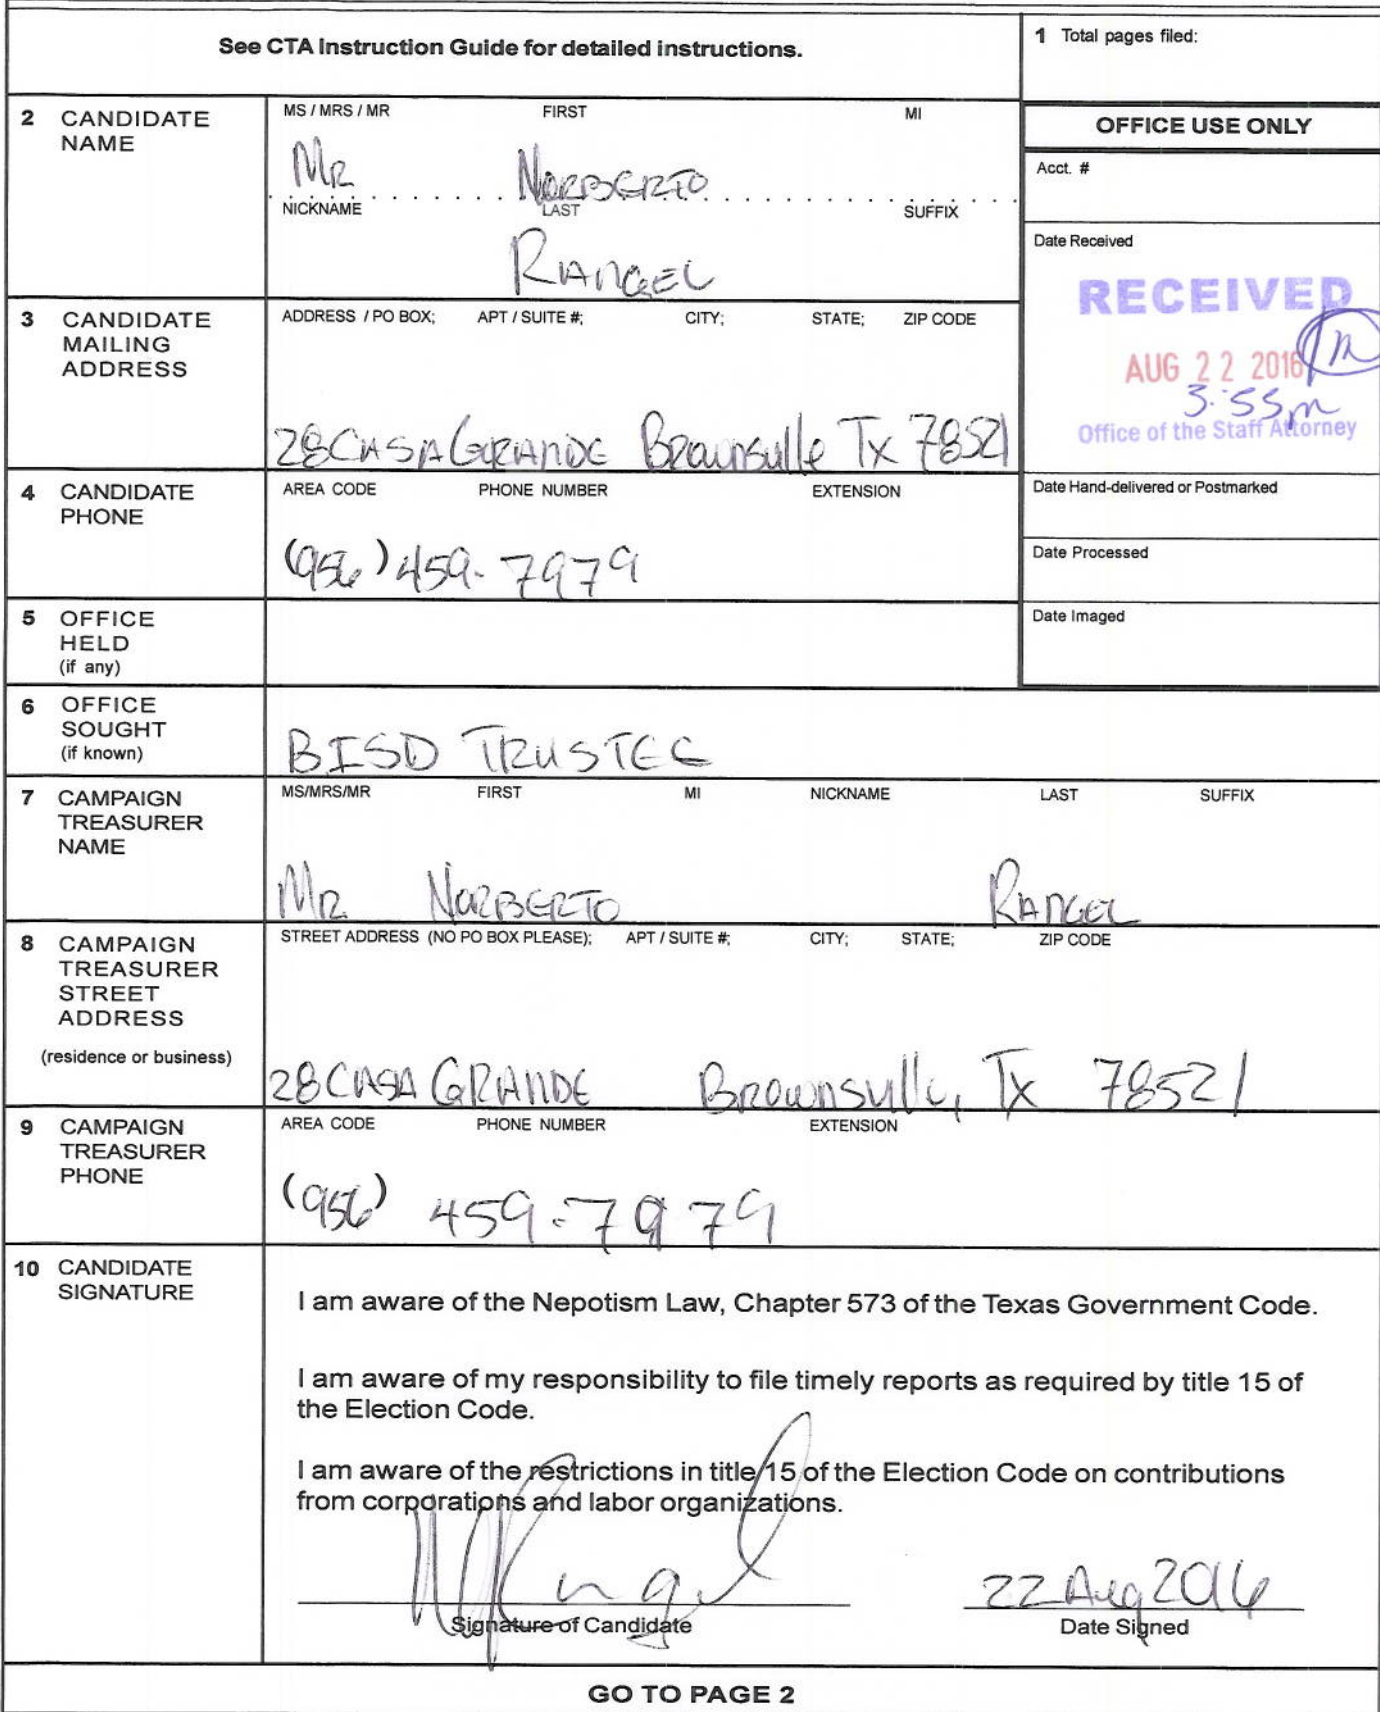 See CTA Instruction Guide for detailed instructions.
1 Total pages filed:
2 CANDIDATE NAME
MS / MRS / MR FIRST MI
Mr Norberto
NICKNAME LAST SUFFIX
Rangel
OFFICE USE ONLY
Acct. #
Date Received
RECEIVED
AUG 22 2016
3:55pm
Office of the Staff Attorney
3 CANDIDATE MAILING ADDRESS
ADDRESS / PO BOX; APT / SUITE #; CITY; STATE; ZIP CODE
28 CASA GRANDE Brownsville Tx 78521
4 CANDIDATE PHONE
AREA CODE PHONE NUMBER EXTENSION
(956) 459-7979
Date Hand-delivered or Postmarked
Date Processed
5 OFFICE HELD (if any)
Date Imaged
6 OFFICE SOUGHT (if known)
BISD TRUSTEE
7 CAMPAIGN TREASURER NAME
MS/MRS/MR FIRST MI NICKNAME LAST SUFFIX
Mr Norberto Rangel
8 CAMPAIGN TREASURER STREET ADDRESS
(residence or business)
STREET ADDRESS (NO PO BOX PLEASE); APT / SUITE #; CITY; STATE; ZIP CODE
28 CASA GRANDE Brownsville, Tx 78521
9 CAMPAIGN TREASURER PHONE
AREA CODE PHONE NUMBER EXTENSION
(956) 459-7979
10 CANDIDATE SIGNATURE
I am aware of the Nepotism Law, Chapter 573 of the Texas Government Code.
I am aware of my responsibility to file timely reports as required by title 15 of
the Election Code.
I am aware of the restrictions in title 15 of the Election Code on contributions
from corporations and labor organizations.
22 Aug 2016
Signature of Candidate Date Signed
GO TO PAGE 2